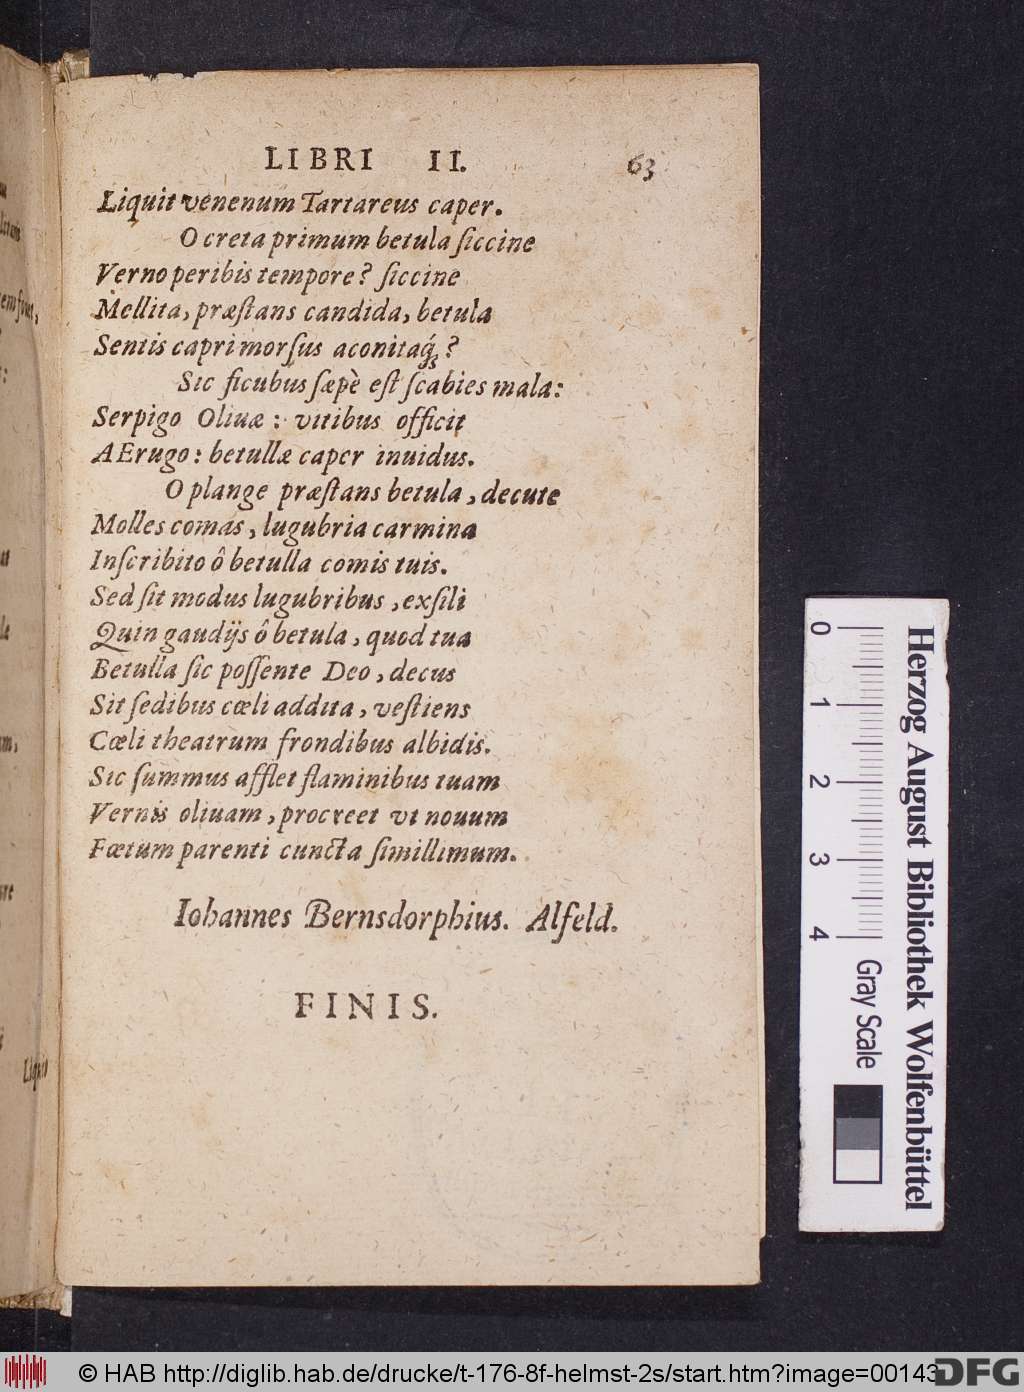 LIBRI II. 63
Liquit venenum Tartareus caper.
O creta primum betula ſiccine
Verno peribis tempore? ſiccine
Mellita, præſtans candida, betula
Sentis capri morſus aconitaq́;?
Sic ficubus ſæpè eſt ſcabies mala:
Serpigo Oliuæ: vitibus officit
AErugo: betullæ caper inuidus.
O plange præſtans betula, decute
Molles comas, lugubria carmina
Inſcribito ô betulla comis tuis.
Sed ſit modus lugubribus, exſili
Quin gaudijs ô betula, quod tua
Betulla ſic poſſente Deo, decus
Sit ſedibus cœli addita, veſtiens
Cœli theatrum frondibus albidis.
Sic ſummus afflet flaminibus tuam
Vernis oliuam, procreet vt nouum
Fœtum parenti cuncta ſimillimum.
Iohannes Bernsdorphius. Alfeld.
FINIS.
Herzog August Bibliothek Wolfenbüttel
0 1 2 3 4 Gray Scale
© HAB http://diglib.hab.de/drucke/t-176-8f-helmst-2s/start.htm?image=00143
DFG